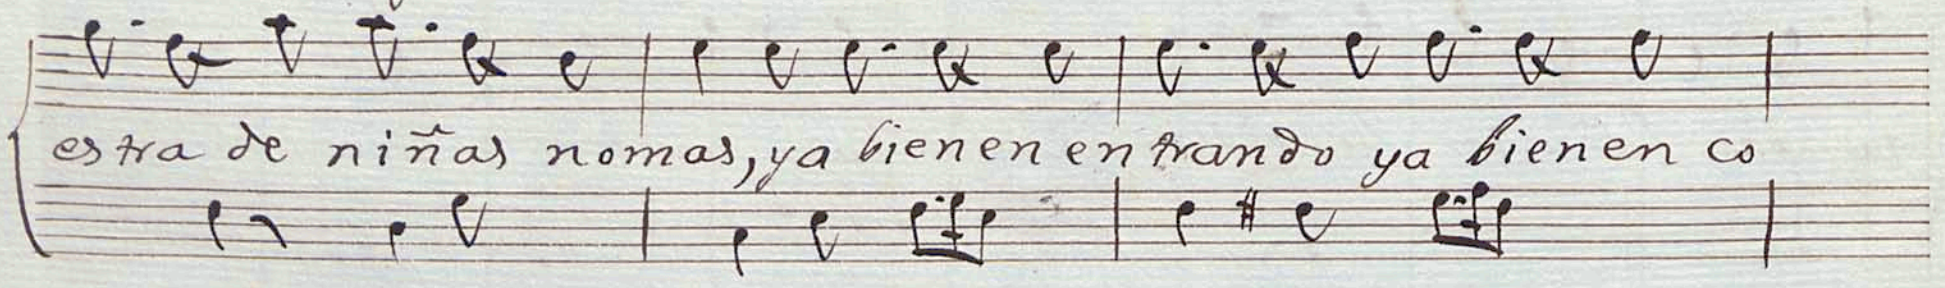 estra de niñas nomas, ya bienen entrando ya bienen co